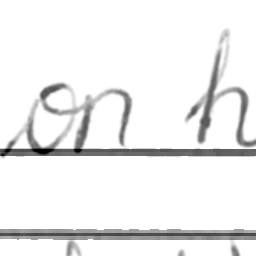 on h